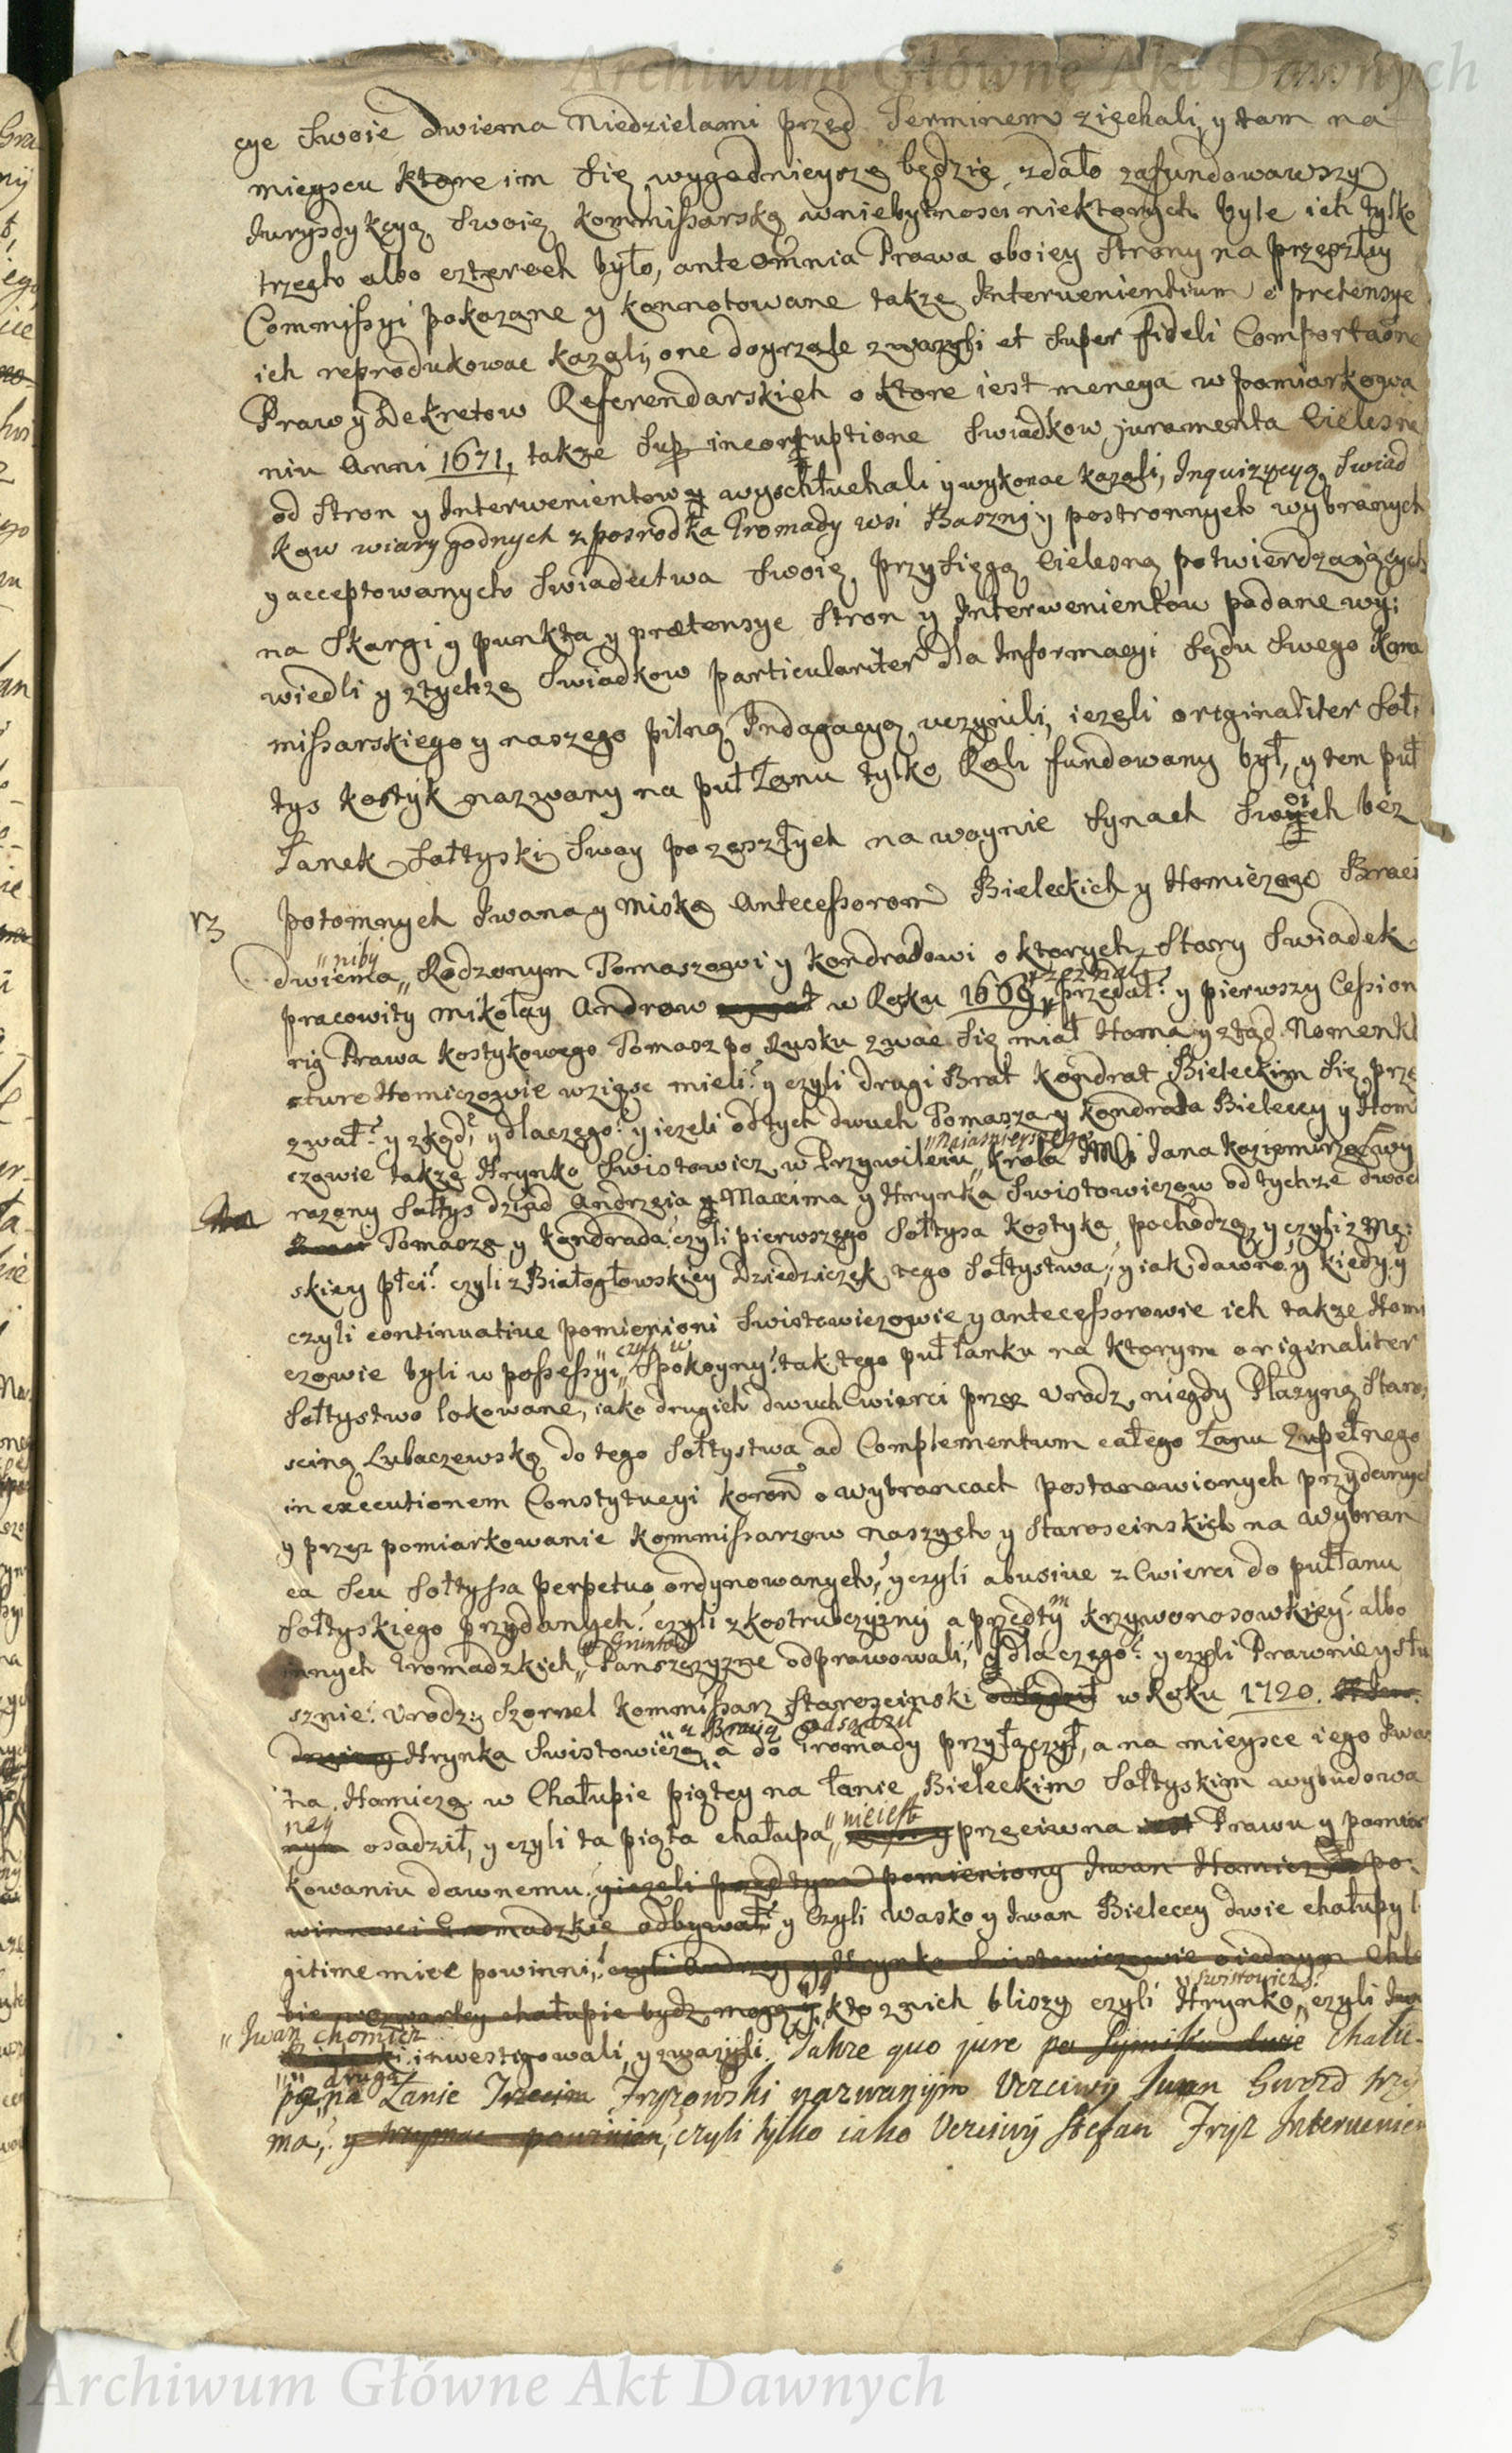 Archiwum Główne Akt Dawnych
cye Swoie dwiema Niedzielami przed Terminem ziechali, y tam na
mieyscu ktore im Się wygodnieysze będzie zdało zafundowawszy
Jurysdykcyą Swoię Kommissarską w niebytnosci niektorych byle ich tylko
trzech albo czterech było, ante omnia Prawa oboiey Strony na przeszłey
Commissyi pokazane y konnotowane takze Intervenientium et pretensye
ich reprodukowac kazali, one doyrzale zwazyli et Super fideli Comportaōne
Praw y Dekretow Referendarskich o ktore iest mencya w pomiarkowa
niu Anni 1671, takze Sup incorruptione Swiadkow juramenta Cielesne
od Stron y Interwenientow wysłuchali y wykonac kazali, Inquizycyą Swiad
kow wiary godnych z posrodka Gromady wsi Baszni y postronnych wybranych
y acceptowanych Swiadectwa Swoie przysięgą Cielesną potwierdzaiących
na Skargi y punkta y prætensye Stron y Interwenientow podane wy:
wiedli y z tychze Swiadkow particulariter dla Informacyi Sądu Swego Kom
missarskiego y naszego pilną Indagacyą uczynili, iezeli originaliter Soł,
tys Kostyk nazwany na puł Łanu tylko Roli fundowany był, y ten puł
Łanek Sołtyski Swoy po zeszłych na woynie Synach Swoich bez
potomnych Iwana y Miska Antecessorom Bieleckich y Homiczego Braci
dwiema „niby„ Rodzonym Tomaszowi y Kondradowi o ktorych Stary Swiadek
pracowity Mikołay Androw zeznał w Roku 1669, przedał? y pierwszy Cession
rię Prawa Kostykowego Tomasz po Rusku zwac Się miał Homa y ztąd Nomenkl
cture Homiczowie wziąsc mieli? y czyli drugi Brat Kondrat Bieleckim Się prze
zwał? y zkąd? y dlaczego? y iezeli od tych dwuch Tomasza y Kondrata Bieleccy y Hom
czowie takze Hrynko Swistowicz w Przywileiu „Naiasnieyszego„ Krola JMci Jana Kazimierza Wy
razony Sołtys dziad Andrzeia y Maxima y Hrynka Swistowiczow od tychze dwoch
Tomasza y Kondrada? czyli pierwszego Sołtysa Kostyka pochodzą, y czyli z Mę:
skiey płci? czyli z Białogłowskiey Dziedziczek tego Sołtystwa, y iak dawno? y kiedy y
czyli continuative pomienioni Swistowiczowie y antecessorowie ich takze Homi
czowie byli w possessyi „czyli w„ Spokoyny? tak tego puł łanku na ktorym originaliter
Sołtystwo lokowane, iako drugich dwuch Cwierci przez Urodz. niegdy Płazyną Staro,
scinę Lubaczewską do tego Sołtystwa ad Complementum całego Łanu Zupełnego
in executionem Constytucyi Koroń o wybrancach postanowionych przydanych
y przez pomiarkowanie Kommissarzow naszych y Staroscinskich na Wybran
ca Seu Sołtyssa perpetuo ordynowanych, y czyli abusive z Cwierci do puł łanu
Sołtyskiego przydanych? czyli z kostrubczyzny a przedtym krzywonosowskiey? albo
innych Gromadzkich „Gruntow„ Panszczyzne odprawowali, y dlaczego? y czyli Prawnie y słu
sznie? Urodz. Szornel Kommissarz Staroscinski odsądził w Roku 1720.
Hrynka Swistowicza „z Bracią odsądził„ a do Gromady przyłączył, a na mieysce iego Iwa
na Homicza w Chałupie piątey na łanie Bieleckim Sołtyskim wybudowa
ney osadził, y czyli ta piąta chałupa „nieiest„ przeciwna Prawu y pomiar
kowaniu dawnemu. y iezeli przed tym pomieniony Iwan Homicz po:
winnosci Gromadzkie odbywał? y Czyli Wasko y Iwan Bieleccy dwie chałupy l
gitime miec powinni? czyli Andrzey y Hrynko Swistowiczowie o iednym Chle
bie w czwartey chałupie bydz mogą y kto z nich bliszy czyli Hrynko „Swistowicz„ czyli
„Iwan Chomicz inwestigowali, y zwazyli. Takze quo jure Chału-
pę „drugą„ na Łanie Trzecim Fryzowski nazwanym Uczciwy Iwan Gwozd trzy
ma, y trzymac powinien, czyli tylko iako Uczciwy Stefan Fryz Intervenien
Archiwum Główne Akt Dawnych